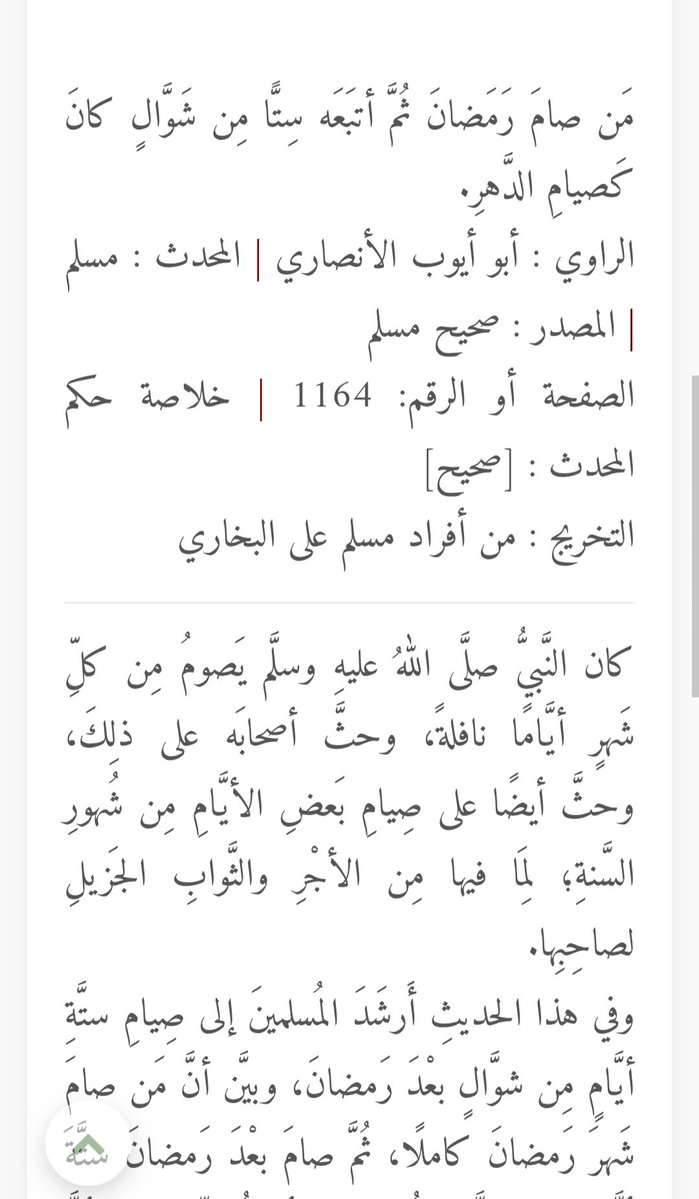 مَن صامَ رَمَضانَ ثُمَّ أتبَعَه سِتًّا مِن شَوَّالٍ كانَ
كَصيامِ الدَّهرِ.
الراوي : أبو أيوب الأنصاري | المحدث : مسلم
| المصدر : صحيح مسلم
الصفحة أو الرقم: 1164 | خلاصة حكم
المحدث : [صحيح]
التخريج : من أفراد مسلم على البخاري
كان النَّبيُّ صلَّى اللهُ عليهِ وسلَّم يَصومُ مِن كلِّ
شَهرٍ أيَّامًا نافلةً، وحثَّ أصحابَه على ذلِكَ،
وحثَّ أيضًا على صِيامِ بَعضِ الأيَّامِ مِن شُهورِ
السَّنةِ؛ لِمَا فيها مِن الأجْرِ والثَّوابِ الجَزيلِ
لصاحِبِها.
وفي هذا الحديثِ أَرشَدَ المُسلمينَ إلى صِيامِ ستَّةِ
أيَّامٍ مِن شوَّالٍ بعْدَ رَمضانَ، وبيَّن أنَّ مَن صامَ
شَهرَ رَمضانَ كاملًا، ثُمَّ صامَ بعْدَ رَمضانَ ستَّةَ